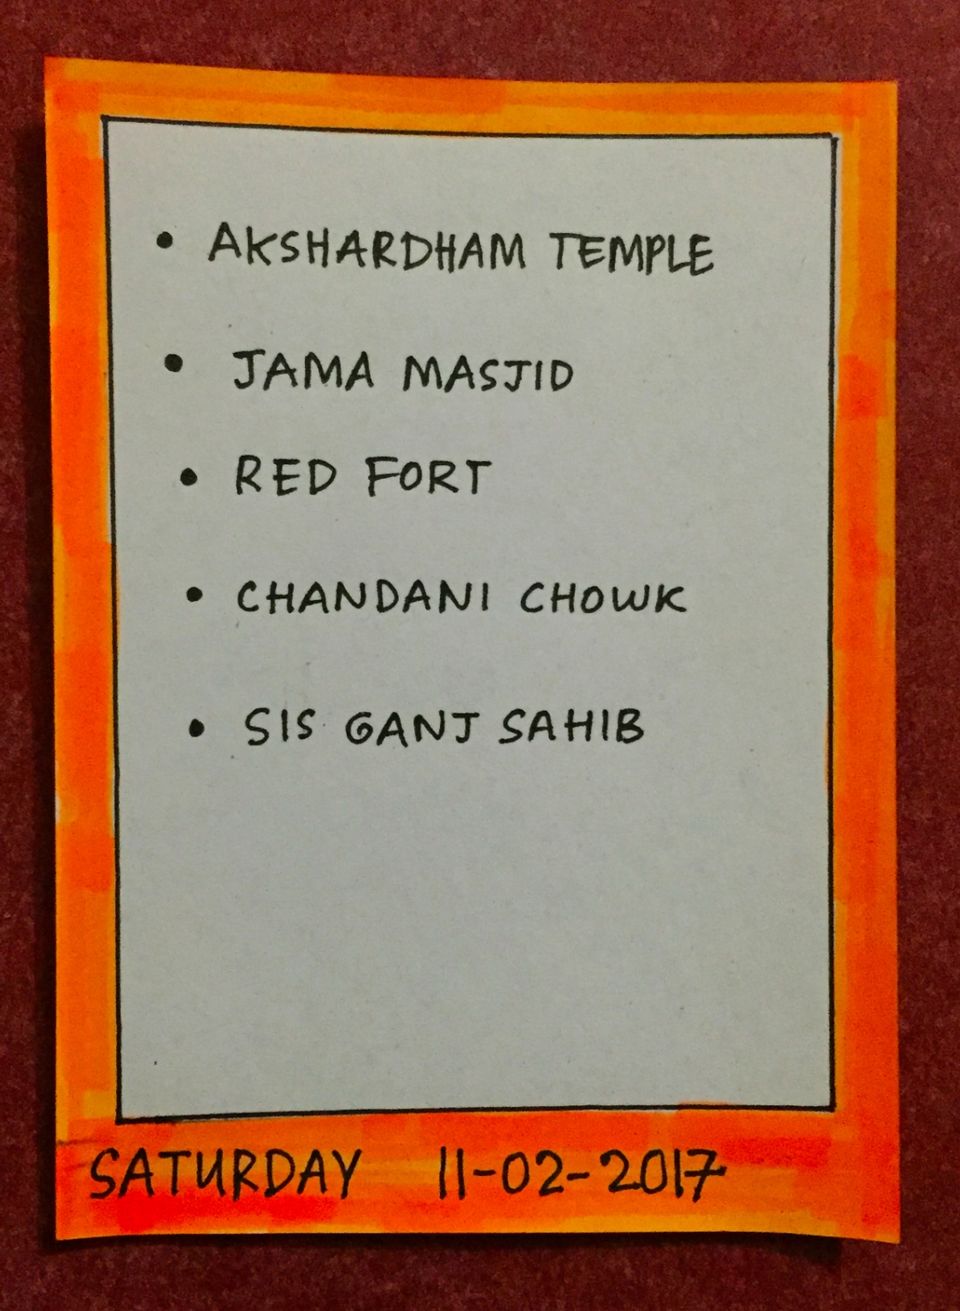 • AKSHARDHAM TEMPLE
• JAMA MASJID
• RED FORT
• CHANDANI CHOWK
• SIS GANJ SAHIB
SATURDAY 11-02-2017